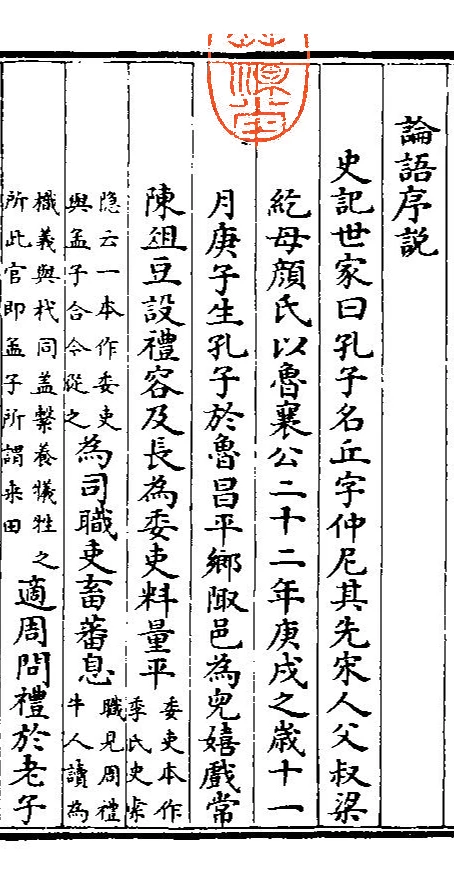 論語序説
史記世家曰孔子名丘字仲尼其先宋人父叔梁
紇母顔氏以魯襄公二十二年庚戌之歲十一
月庚子生孔子於魯昌平鄉陬邑為兒嬉戲常
陳俎豆設禮容及長為委吏料量平委吏本作季氏史索
隐云一本作委吏與孟子合今從之為司職吏畜蕃息職見周禮牛人讀為
樴義與杙同盖繫養犧牲之所此官即孟子所謂乗田適周問禮於老子